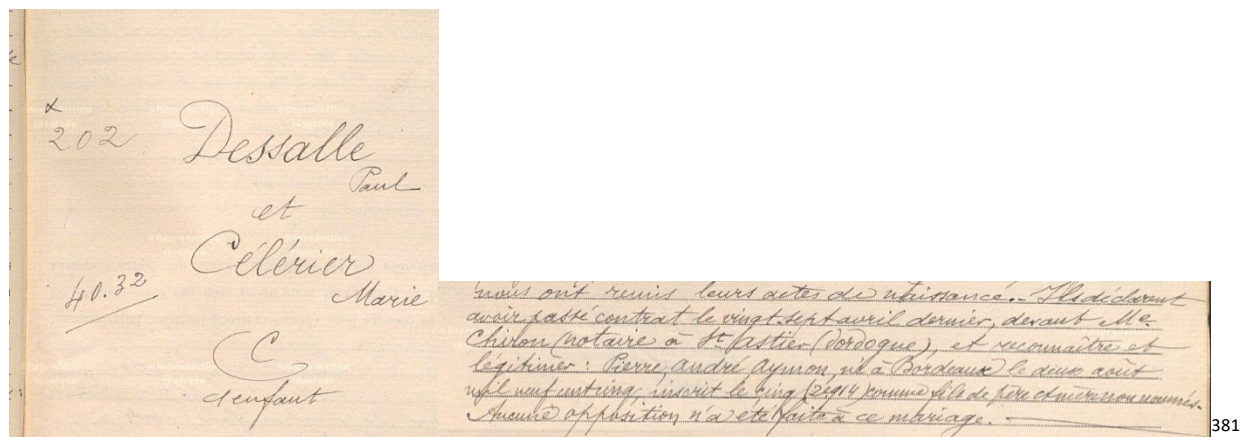 202
Dessalle
Paul
et
Célérier
Marie
40.32
C
d'enfant
nous ont remis leurs actes de naissance. - Ils déclarent
avoir passé contrat le vingt sept avril dernier, devant Me
Chiron, notaire à St Astier (Dordogne), et reconnaître et
légitimer : Pierre, André Aymon, né à Bordeaux le deux août
mil neuf cent cinq, inscrit le cinq (2e 914) comme fils de père et mère non nommés.
Aucune opposition n'a été faite à ce mariage.
381